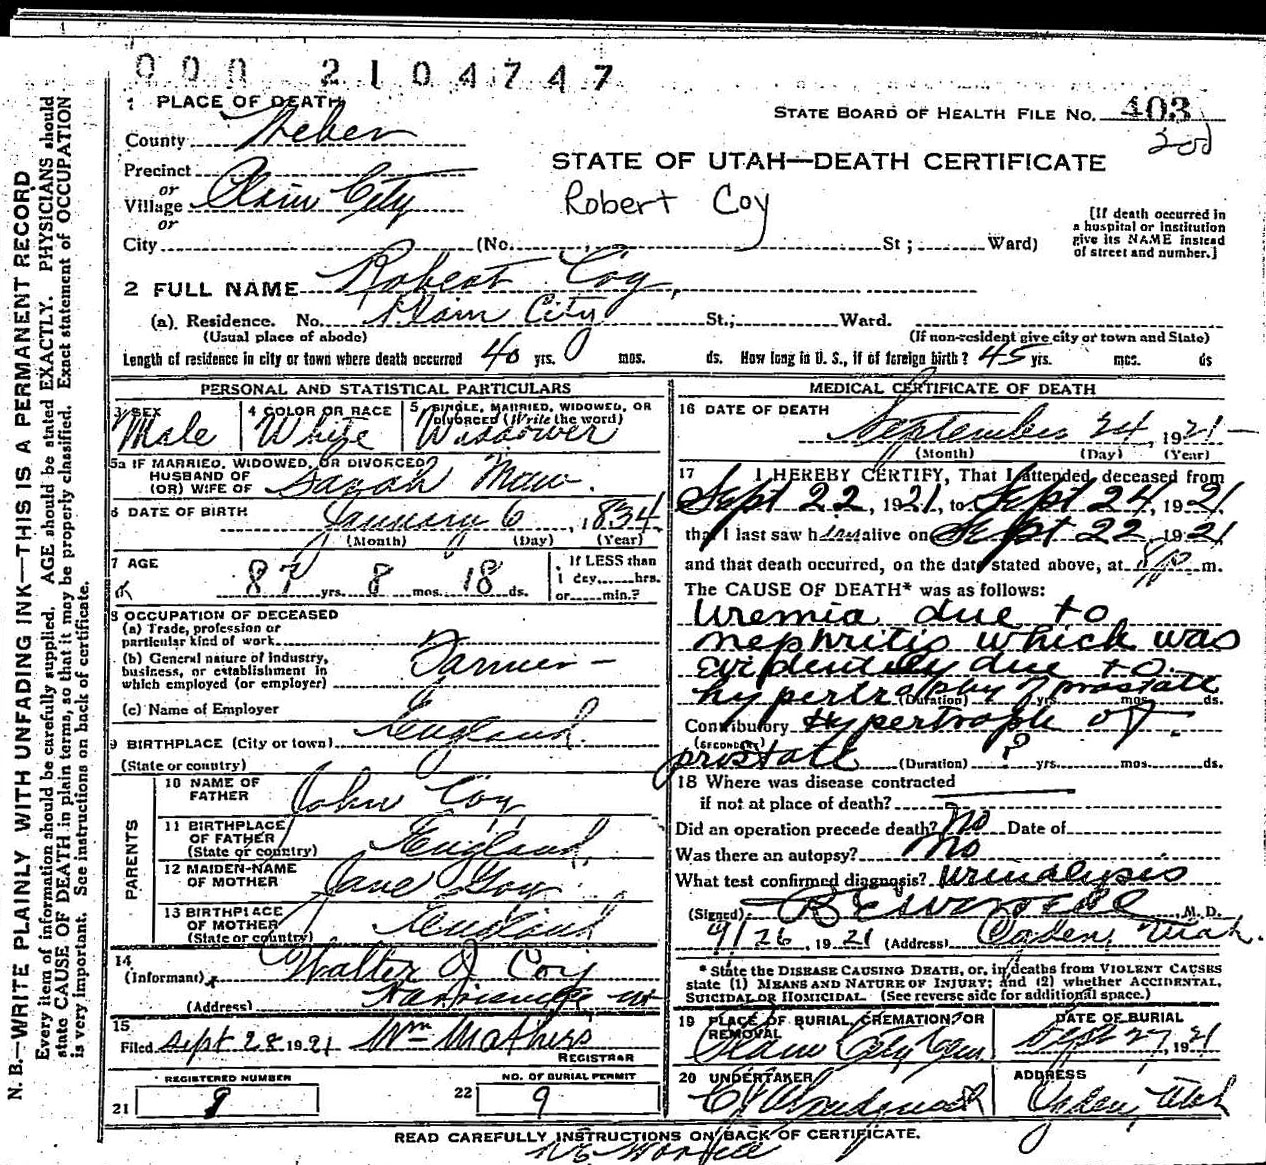 000 2104747
1 PLACE OF DEATH
STATE BOARD OF HEALTH FILE No. 403
County Weber
STATE OF UTAH—DEATH CERTIFICATE
Precinct
or
Village Plain City
Robert Coy
or
City (No. St; Ward)
[If death occurred in
a hospital or institution
give its NAME instead
of street and number.]
2 FULL NAME Robert Coy,
(a). Residence. No. Plain City St.; Ward.
(Usual place of abode) (If non-resident give city or town and State)
Length of residence in city or town where death occurred 40 yrs. 0 mos. ds. How long in U. S., if of foreign birth? 45 yrs. mos. ds
PERSONAL AND STATISTICAL PARTICULARS
3 SEX
Male
4 COLOR OR RACE
White
5 SINGLE, MARRIED, WIDOWED, OR
DIVORCED (Write the word)
Widower
5a IF MARRIED, WIDOWED, OR DIVORCED
HUSBAND OF
(OR) WIFE OF Sarah Maw.
6 DATE OF BIRTH January 6, 1834
(Month) (Day) (Year)
7 AGE
87 yrs. 8 mos. 18 ds.
If LESS than
1 day, hrs.
or min.?
8 OCCUPATION OF DECEASED
(a) Trade, profession or
particular kind of work
(b) General nature of industry,
business, or establishment in
which employed (or employer)
Farmer —
(c) Name of Employer
9 BIRTHPLACE (City or town) England.
(State or country)
PARENTS
10 NAME OF
FATHER John Coy,
11 BIRTHPLACE
OF FATHER
(State or country) England,
12 MAIDEN-NAME
OF MOTHER Jane Goy
13 BIRTHPLACE
OF MOTHER
(State or country) England
14
(Informant) Walter J Coy
(Address) Harrisville ut
15
Filed Sept 28 1921 Wm Mathers
REGISTRAR
REGISTERED NUMBER
21 9
NO. OF BURIAL PERMIT
22 9
MEDICAL CERTIFICATE OF DEATH
16 DATE OF DEATH
September 24, 1921—
(Month) (Day) (Year)
17 I HEREBY CERTIFY, That I attended deceased from
Sept 22, 1921, to Sept 24, 1921,
that I last saw him alive on Sept 22, 1921
and that death occurred, on the date stated above, at m.
The CAUSE OF DEATH* was as follows:
Uremia due to
nephritis which was
evidently due to
hypertrophy of prostate
(Duration) yrs. mos. ds.
Contributory Hypertrophy of
(SECONDARY)
prostate (Duration) ? yrs. mos. ds.
18 Where was disease contracted
if not at place of death?
Did an operation precede death? No Date of
Was there an autopsy? No
What test confirmed diagnosis? Urinalysis
(Signed) M. D.
9/26, 1921 (Address) Ogden, Utah.
* State the DISEASE CAUSING DEATH, or, in deaths from VIOLENT CAUSES
state (1) MEANS AND NATURE OF INJURY; and (2) whether ACCIDENTAL,
SUICIDAL OR HOMICIDAL. (See reverse side for additional space.)
19 PLACE OF BURIAL, CREMATION, OR
REMOVAL
Plain City Cem
DATE OF BURIAL
Sept 27, 1921
20 UNDERTAKER
ADDRESS
Ogden, Utah
READ CAREFULLY INSTRUCTIONS ON BACK OF CERTIFICATE.
N. B.—WRITE PLAINLY WITH UNFADING INK—THIS IS A PERMANENT RECORD
Every item of information should be carefully supplied. AGE should be stated EXACTLY. PHYSICIANS should
state CAUSE OF DEATH in plain terms, so that it may be properly classified. Exact statement of OCCUPATION
is very important. See instructions on back of certificate.